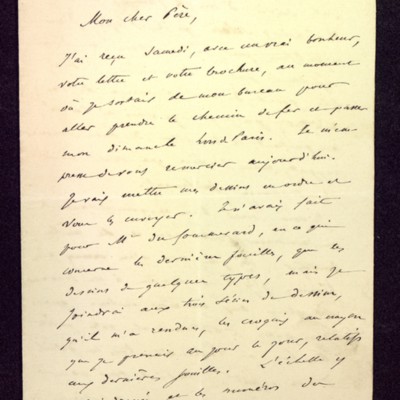 Mon cher Père,
J'ai reçu Samedi, avec un vrai bonheur,
votre lettre et votre brochure, au moment
où je sortais de mon bureau pour
aller prendre le chemin de fer et passer
mon dimanche hors de Paris. Je m'em
presse de vous remercier aujourd'hui.
Je vais mettre mes dessins en ordre et
vous les envoyer. Je n'avais fait
pour Mr du Sommerard, en ce qui
concerne les dernières fouilles, que les
dessins de quelques types, mais je
joindrai aux trois séries de dessins,
qu'il m'a rendues, les croquis au crayon
que je prenais au jour le jour, relatifs
aux dernières fouilles. L'échelle y
et les numéros des